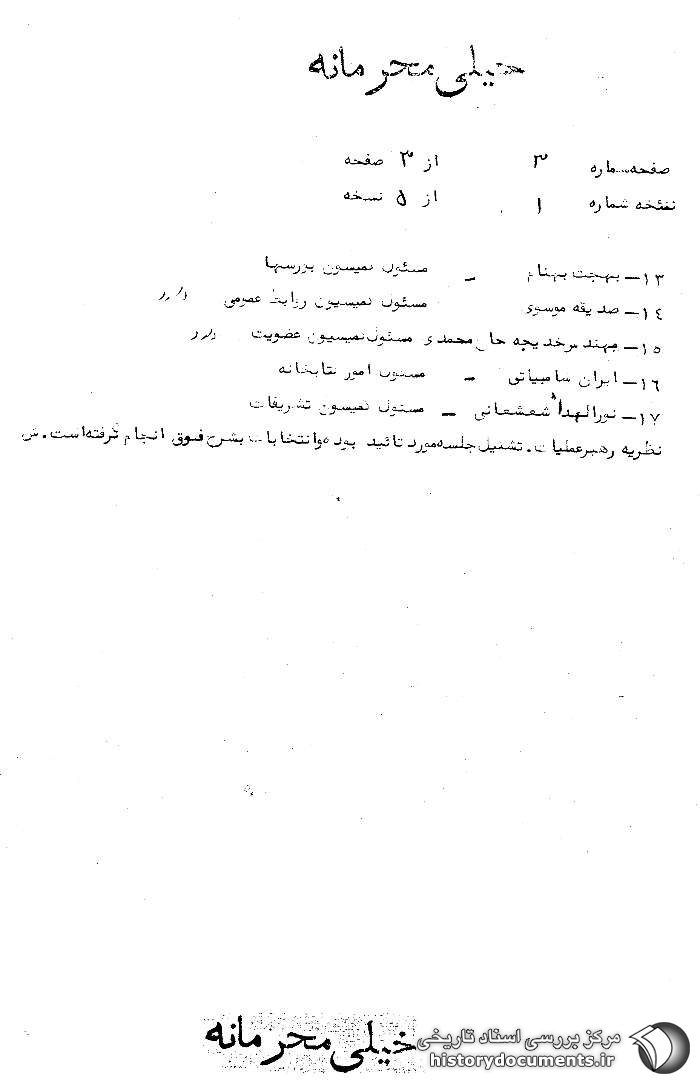 خیلی محرمانه
صفحه شماره ۳ از ۳ صفحه
نسخه شماره ۱ از ۵ نسخه
۱۳ــ بهجت بهنام ــ مسئول کمیسیون بررسیها
۱۴ــ صدیقه موسوی مسئول کمیسیون روابط عمومی دارد
۱۵ــ مهندس خدیجه حاج محمدی مسئول کمیسیون عضویت دارد
۱۶ــ ایران سامیاتی ــ مسئول امور کتابخانه
۱۷ــ نورالهدا شعشعانی ــ مسئول کمیسیون تشریفات
نظریه رهبر عملیات . تشکیل جلسه مورد تائید بوده وانتخابات بشرح فوق انجام گرفته است .
خیلی محرمانه
مرکز بررسی اسناد تاریخی
historydocuments.ir